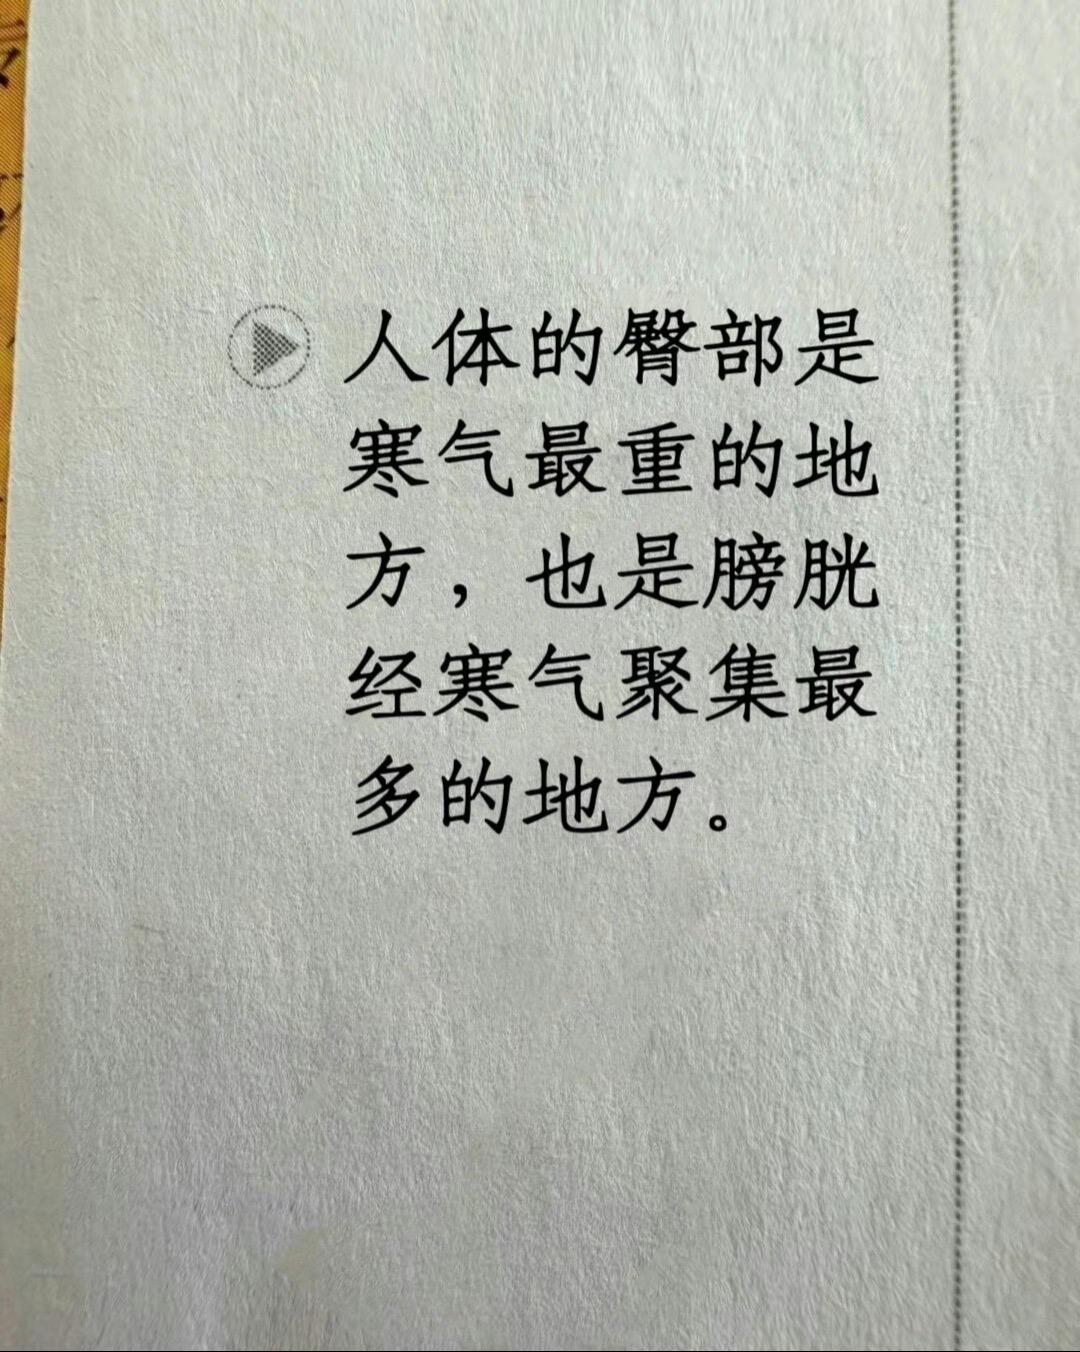 人体的臀部是
寒气最重的地
方，也是膀胱
经寒气聚集最
多的地方。